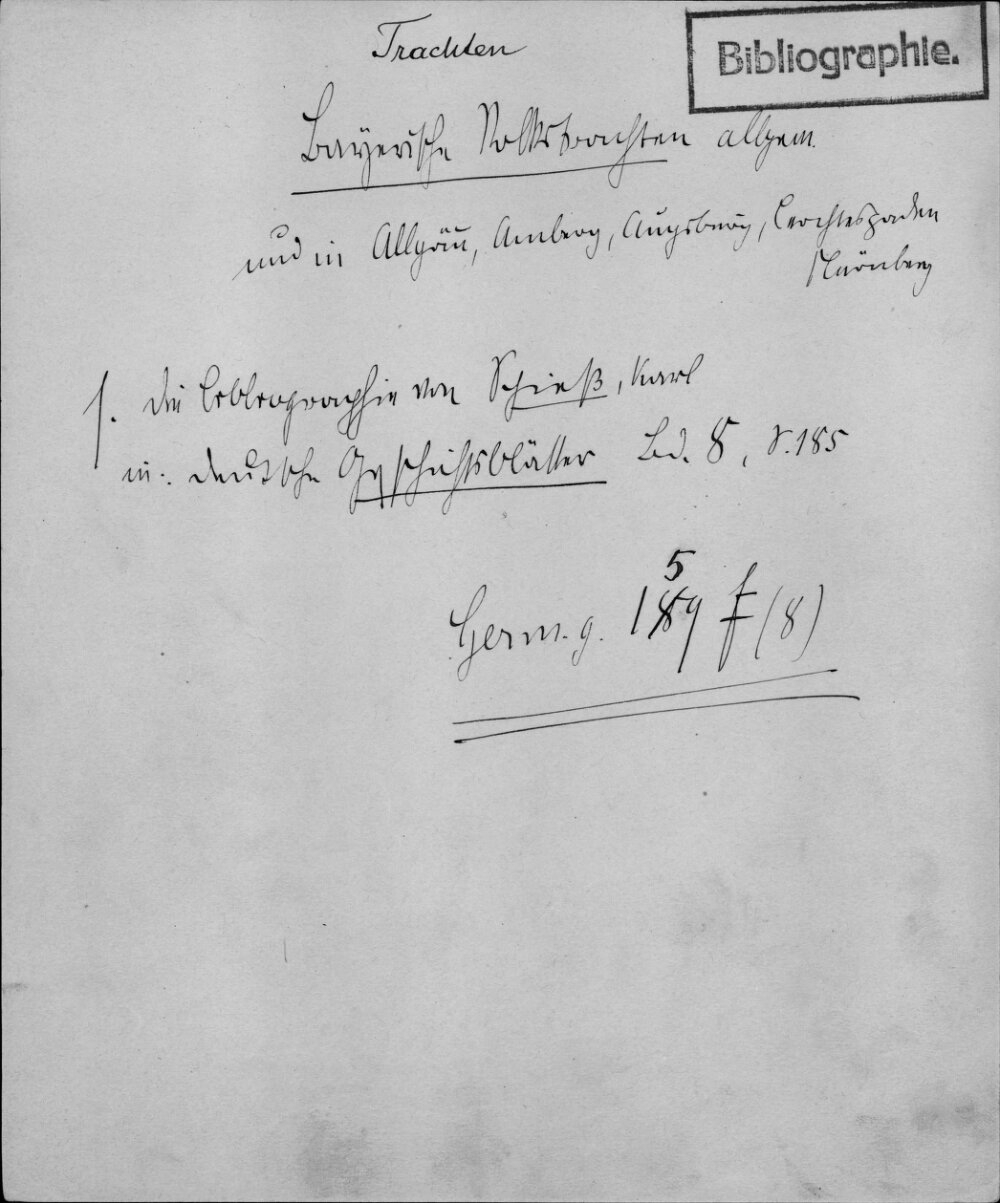 Trachten
Bibliographie.
Bayerische Volkstrachten allgem.
und in Allgäu, Amberg, Augsburg, Berchtesgaden
Nürnberg
s. die Bibliographie von Spieß, Karl
in: deutsche Geschichtsblätter Bd. 8, S. 185
5
Germ. g. 189 f (8)